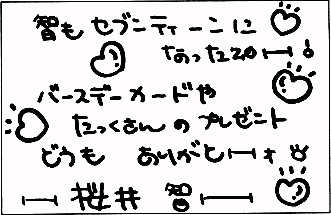 智もセブンティーンに
なったゾ〜!
バースデーカードや
たっくさんのプレゼント
どうもありがと〜ォ
桜井智